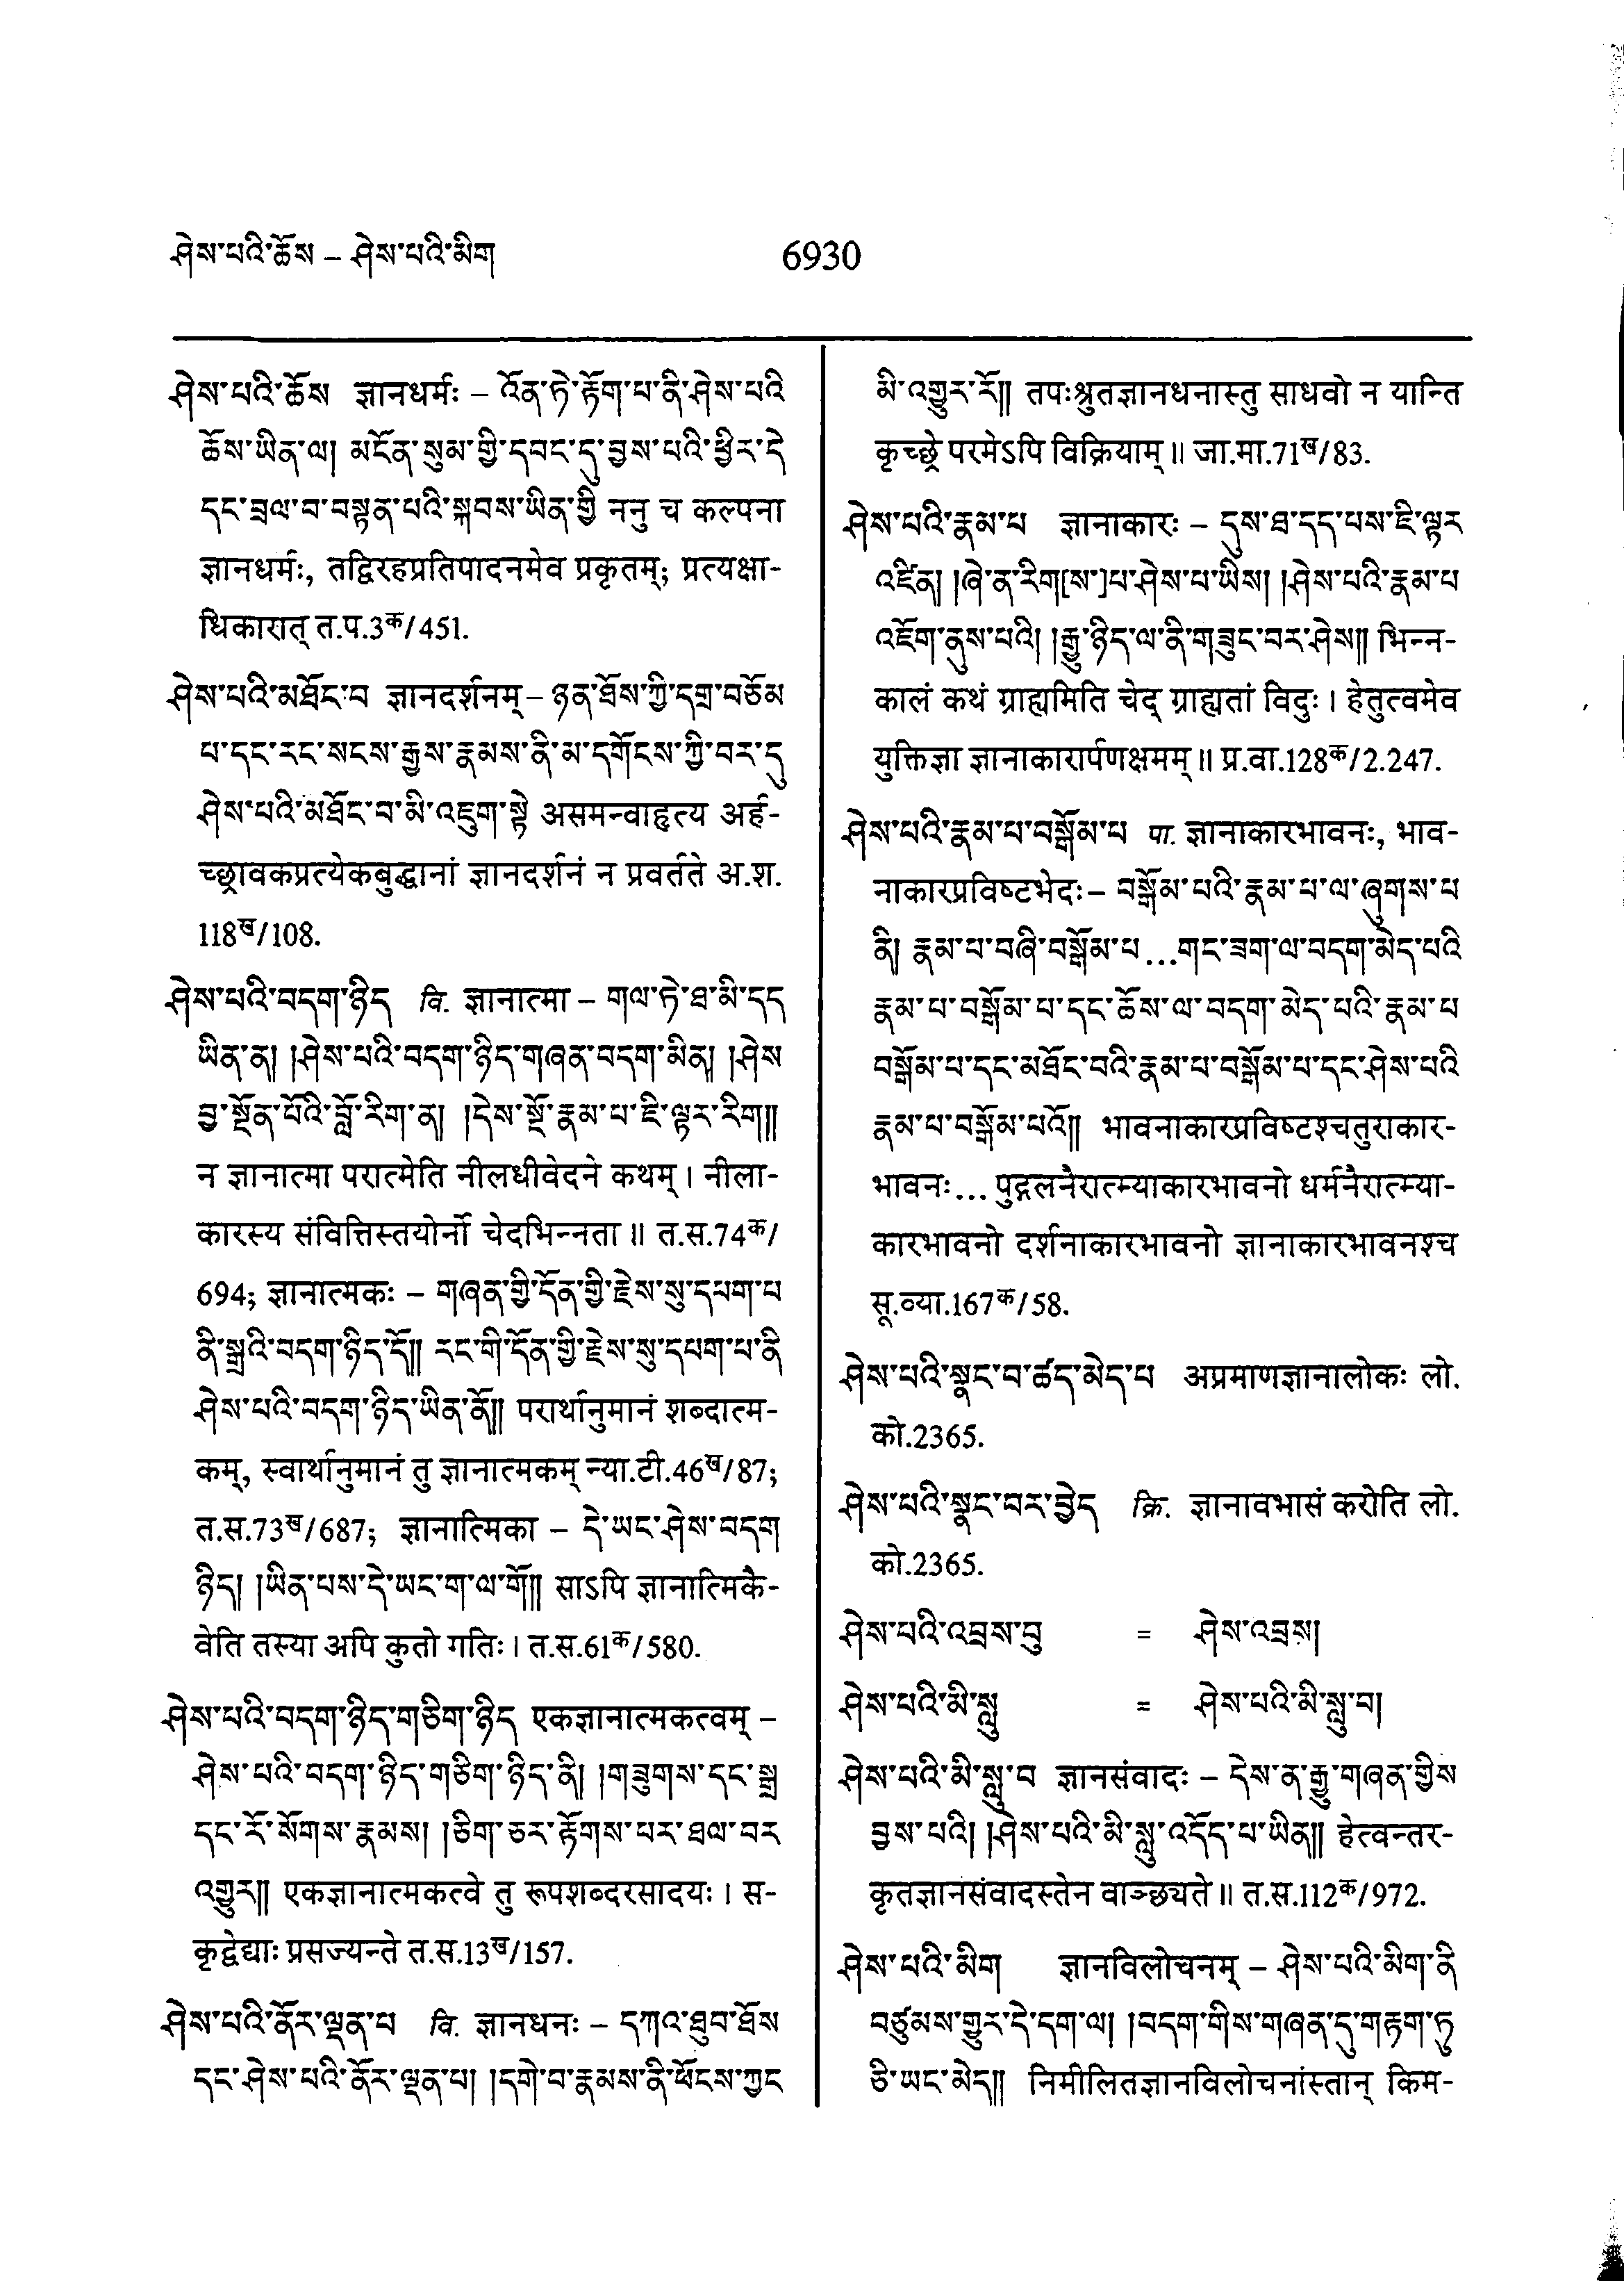 ཤེས་པའི་ཆོས – ཤེས་པའི་མིག
6930
ཤེས་པའི་ཆོས ज्ञानधर्मः – འོན་ཏེ་རྟོག་པ་ནི་ཤེས་པའི
ཆོས་ཡིན་ལ། མངོན་སུམ་གྱི་དབང་དུ་བྱས་པའི་ཕྱིར་དེ
དང་བྲལ་བ་བསྟན་པའི་སྐབས་ཡིན་གྱི ननु च कल्पना
ज्ञानधर्मः, तद्विरहप्रतिपादनमेव प्रकृतम्; प्रत्यक्षा-
धिकारात् त.प.3क/451.
ཤེས་པའི་མཐོང་བ ज्ञानदर्शनम् – ཉན་ཐོས་ཀྱི་དགྲ་བཅོམ
པ་དང་རང་སངས་རྒྱས་རྣམས་ནི་མ་དགོངས་ཀྱི་བར་དུ
ཤེས་པའི་མཐོང་བ་མི་འཇུག་སྟེ असमन्वाहृत्य अर्ह-
च्छ्रावकप्रत्येकबुद्धानां ज्ञानदर्शनं न प्रवर्तते अ.श.
118ख/108.
ཤེས་པའི་བདག་ཉིད वि. ज्ञानात्मा – གལ་ཏེ་ཐ་མི་དད
ཡིན་ན། །ཤེས་པའི་བདག་ཉིད་གཞན་བདག་མིན། །ཤེས
བྱ་སྔོན་པོའི་བློ་རིག་ན། །དེས་སྔོ་རྣམ་པ་ཇི་ལྟར་རིག༎
न ज्ञानात्मा परात्मेति नीलधीवेदने कथम् । नीला-
कारस्य संवित्तिस्तयोर्नो चेदभिन्नता ॥ त.स.74क/
694; ज्ञानात्मकः – གཞན་གྱི་དོན་གྱི་རྗེས་སུ་དཔག་པ
ནི་སྒྲའི་བདག་ཉིད་དོ༎ རང་གི་དོན་གྱི་རྗེས་སུ་དཔག་པ་ནི
ཤེས་པའི་བདག་ཉིད་ཡིན་ནོ༎ परार्थानुमानं शब्दात्म-
कम्, स्वार्थानुमानं तु ज्ञानात्मकम् न्या.टी.46ख/87;
त.स.73ख/687; ज्ञानात्मिका – དེ་ཡང་ཤེས་བདག
ཉིད། །ཡིན་པས་དེ་ཡང་ག་ལ་གོ༎ साऽपि ज्ञानात्मिकै-
वेति तस्या अपि कुतो गतिः । त.स.61क/580.
ཤེས་པའི་བདག་ཉིད་གཅིག་ཉིད एकज्ञानात्मकत्वम् –
ཤེས་པའི་བདག་ཉིད་གཅིག་ཉིད་ནི། །གཟུགས་དང་སྒྲ
དང་རོ་སོགས་རྣམས། །ཅིག་ཅར་རྟོགས་པར་ཐལ་བར
འགྱུར༎ एकज्ञानात्मकत्वे तु रूपशब्दरसादयः । स-
कृद्वेद्याः प्रसज्यन्ते त.स.13ख/157.
ཤེས་པའི་ནོར་ལྡན་པ वि. ज्ञानधनः – དཀའ་ཐུབ་ཐོས
དང་ཤེས་པའི་ནོར་ལྡན་པ། །དགེ་བ་རྣམས་ནི་ཕོངས་ཀྱང
མི་འགྱུར་རོ༎ तपःश्रुतज्ञानधनास्तु साधवो न यान्ति
कृच्छ्रे परमेऽपि विक्रियाम् ॥ जा.मा.71ख/83.
ཤེས་པའི་རྣམ་པ ज्ञानाकारः – དུས་ཐ་དད་པས་ཇི་ལྟར
འཛིན། །ཞེ་ན་རིག[ས་]པ་ཤེས་པ་ཡིས། །ཤེས་པའི་རྣམ་པ
འཇོག་ནུས་པའི། །རྒྱུ་ཉིད་ལ་ནི་གཟུང་བར་ཤེས༎ भिन्न-
कालं कथं ग्राह्यमिति चेद् ग्राह्यतां विदुः । हेतुत्वमेव
युक्तिज्ञा ज्ञानाकारार्पणक्षमम् ॥ प्र.वा.128क/2.247.
ཤེས་པའི་རྣམ་པ་བསྒོམ་པ पा. ज्ञानाकारभावनः, भाव-
नाकारप्रविष्टभेदः – བསྒོམ་པའི་རྣམ་པ་ལ་ཞུགས་པ
ནི། རྣམ་པ་བཞི་བསྒོམ་པ...གང་ཟག་ལ་བདག་མེད་པའི
རྣམ་པ་བསྒོམ་པ་དང་ཆོས་ལ་བདག་མེད་པའི་རྣམ་པ
བསྒོམ་པ་དང་མཐོང་བའི་རྣམ་པ་བསྒོམ་པ་དང་ཤེས་པའི
རྣམ་པ་བསྒོམ་པའོ༎ भावनाकारप्रविष्टश्चतुराकार-
भावनः... पुद्गलनैरात्म्याकारभावनो धर्मनैरात्म्या-
कारभावनो दर्शनाकारभावनो ज्ञानाकारभावनश्च
सू.व्या.167क/58.
ཤེས་པའི་སྣང་བ་ཚད་མེད་པ अप्रमाणज्ञानालोकः लो.
को.2365.
ཤེས་པའི་སྣང་བར་བྱེད क्रि. ज्ञानावभासं करोति लो.
को.2365.
ཤེས་པའི་འབྲས་བུ = ཤེས་འབྲས།
ཤེས་པའི་མི་སླུ = ཤེས་པའི་མི་སླུ་བ།
ཤེས་པའི་མི་སླུ་བ ज्ञानसंवादः – དེས་ན་རྒྱུ་གཞན་གྱིས
བྱས་པའི། །ཤེས་པའི་མི་སླུ་འདོད་པ་ཡིན༎ हेत्वन्तर-
कृतज्ञानसंवादस्तेन वाञ्छ्यते ॥ त.स.112क/972.
ཤེས་པའི་མིག ज्ञानविलोचनम् – ཤེས་པའི་མིག་ནི
བཙུམས་གྱུར་དེ་དག་ལ། །བདག་གིས་གཞན་དུ་གཏག་ཏུ
ཅི་ཡང་མེད༎ निमीलितज्ञानविलोचनांस्तान् किम-